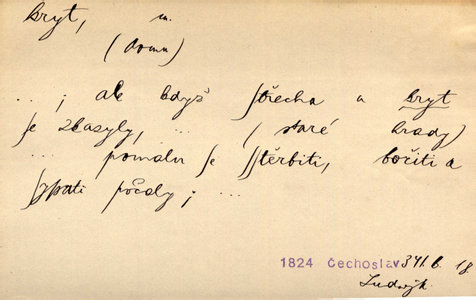 kryt, m.
(domu)
...; ale když střecha a kryt
se zkazyly, ... (staré hrady)
... pomalu se štěrbiti, bočiti a
ssypati počaly; ...
1824 Čechoslav 341. b. 18.
Ludvík.